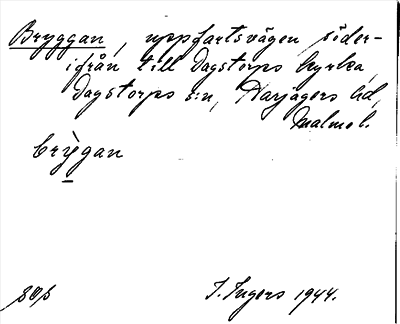 Bryggan, uppfartsvägen söder-
ifrån till Dagstorps kyrka
Dagstorps s:n, Harjagers hd,
Malmöl.
brỳgan
I. Ingers 1944.